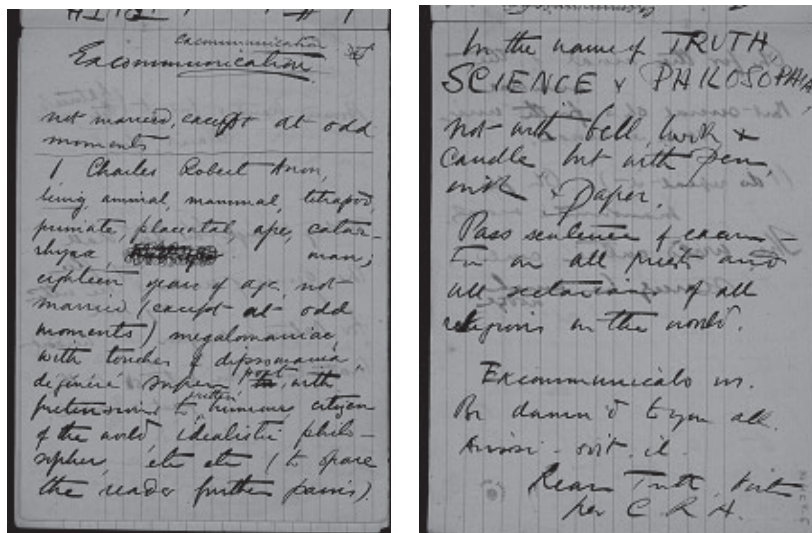 excommunication
Excommunication.
not married, except at odd
moments
I Charles Robert Anon,
being, animal, mammal, tetrapod,
primate, placental, ape, catar-
rhyna, man;
eighteen years of age, not
married (except at odd
moments) megalomaniac,
with touches of dipsomania,
dégénéré supérieur, poet, with
pretensions to written humour, citizen
of the world, idealistic philo-
sopher, etc etc (to spare
the reader further pains).
In the name of TRUTH,
SCIENCE & PHILOSOPHIA
not with bell, book &
candle but with pen,
ink & paper.
Pass sentence of excom-
on all priests and
all sectarians of all
religions in the world.
Excommunicabo vos.
Be damn'd to you all.
Ainsi-soit-il.
Reason, Truth, Virtue
per C. R. A.